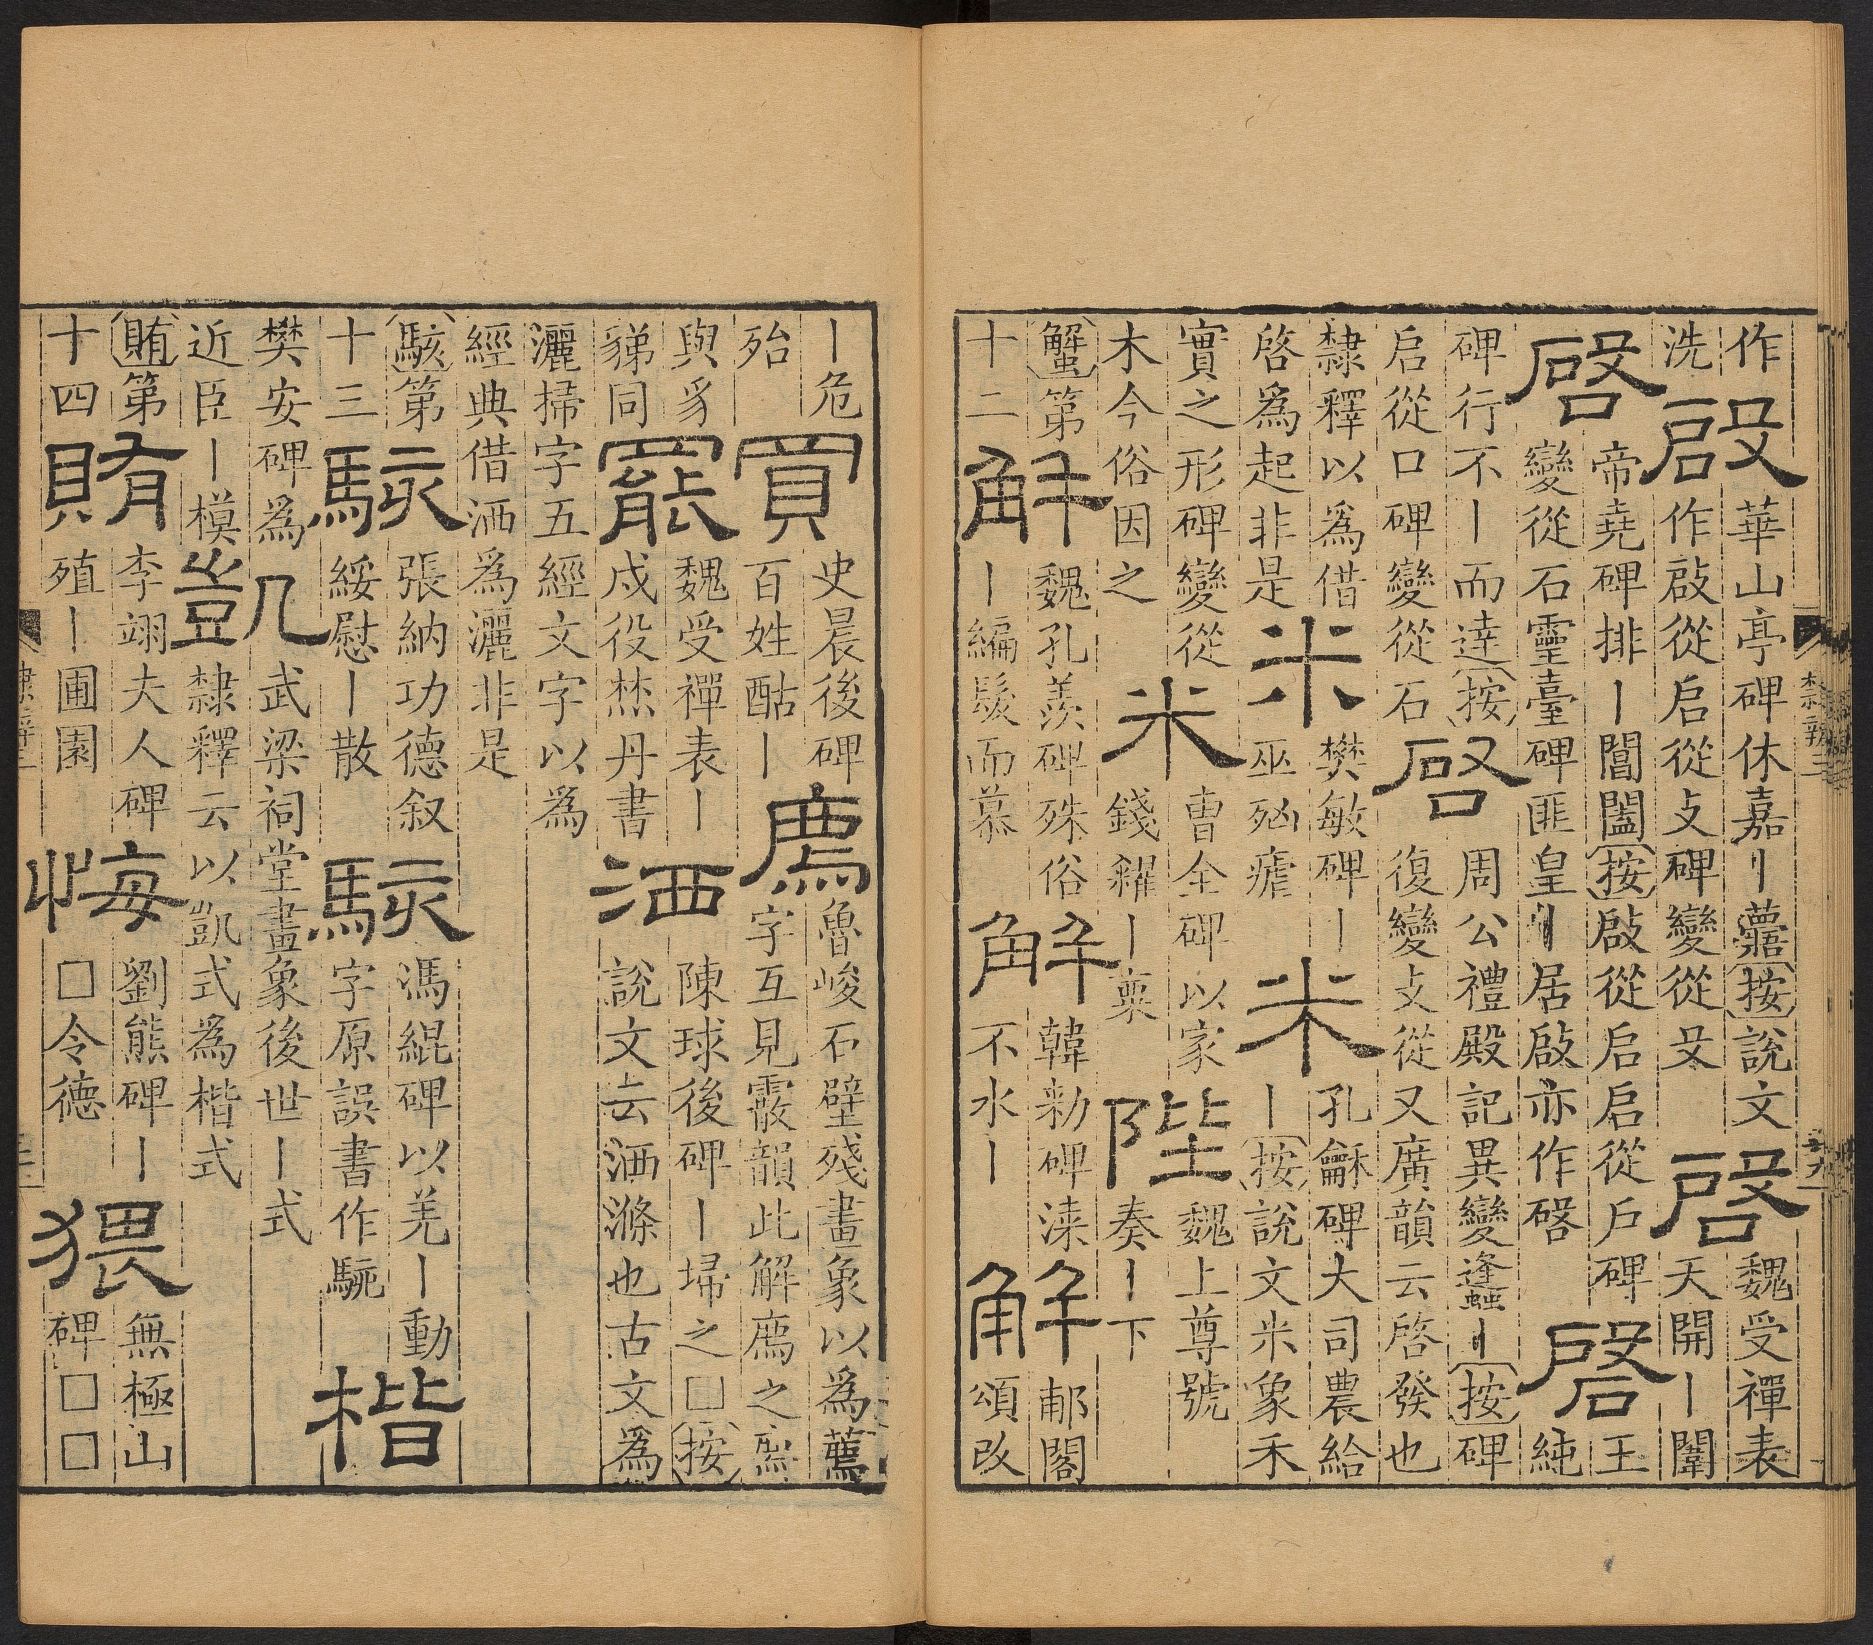 作洗啟華山亭碑休嘉〡蘁按說文作啟從启從攴碑變從殳啓魏受禪表天開〡闡
啓帝堯碑排〡閶闔按啟從启启從戶碑變從石靈臺碑匪皇〡居啟亦作晵啓王純
碑行不〡而達按启從口碑變從石啓周公禮殿記異變逢蠭〡按碑復變攴從又廣韻云啓發也
隸釋以為借啓為起非是米樊敏碑〡巫㓙瘧米孔龢碑大司農給〡按說文米象禾
實之形碑變從木今俗因之米曹全碑以家錢糴〡粟陛魏上尊號奏〡下
蟹第十二解魏孔羨碑殊俗〡編髮而慕解韓勑碑凟不水〡解郙閣頌改
隸辨三
〡危殆買史晨後碑百姓酤〡廌魯峻石壁殘畫象以為薦字互見霰韻此解廌之廌
與豸同罷魏受禪表〡戍役丹書洒陳球後碑〡埽之□按說文云洒滌也古文為
灑掃字五經文字以為經典借洒為灑非是
駭第十三駭張納功德叙綏慰〡散駭馮緄碑以羌〡動字原誤書作駹楷
樊安碑為近臣〡模凱武梁祠堂畫象後世〡式隸釋云以凱式為楷式
賄第十四賄李翊夫人碑殖〡圃園悔劉熊碑〡□令德猥無極山碑□□